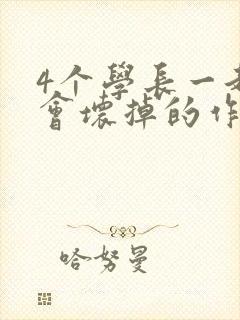 4个學長一
會壞掉的
哈努曼